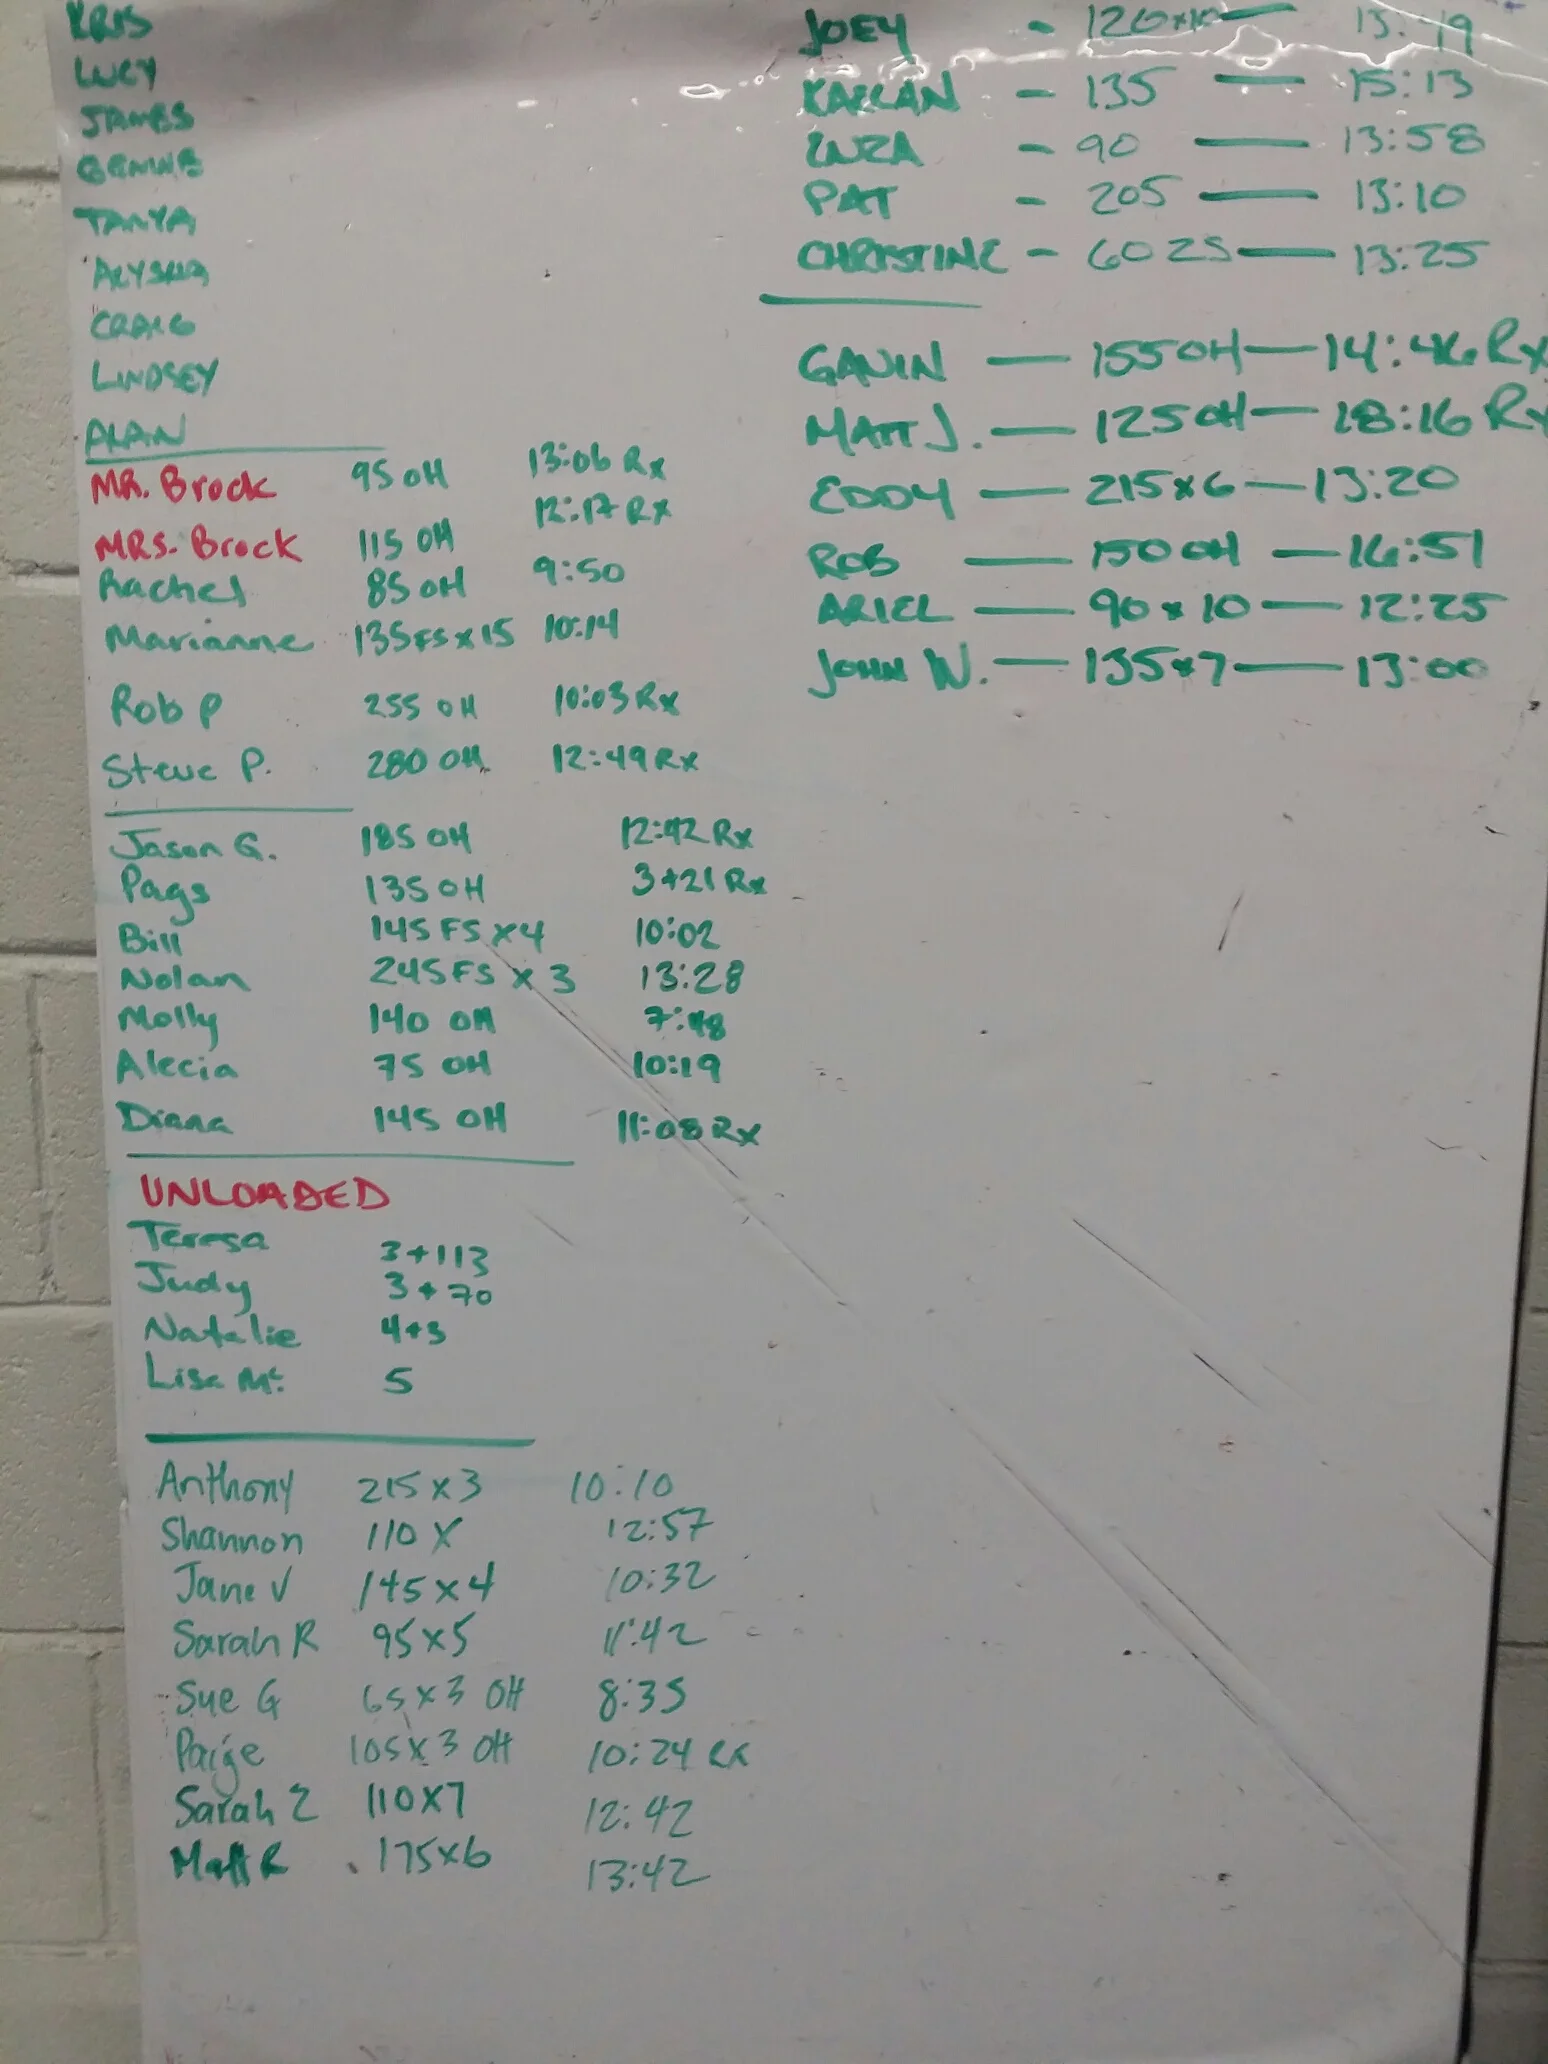 KRIS
LUCY
JAMES
TANYA
ALYSHA
CRAIG
LINDSEY
ALAN
MR. Brock 95 OH 13:06 Rx
MRS. Brock 115 OH 12:17 Rx
Rachel 85 OH 9:50
Marianne 135 FS x 15 10:14
Rob P 255 OH 10:03 Rx
Steve P. 280 OH 12:49 Rx
Jason G. 185 OH 12:42 Rx
Pags 135 OH 3+21 Rx
Bill 145 FS x4 10:02
Nolan 245 FS x 3 13:28
Molly 140 OH 7:48
Alecia 75 OH 10:19
Diana 145 OH 11:08 Rx
UNLOADED
Teresa 3+113
Judy 3+70
Natalie 4+3
Lisa Mc. 5
Anthony 215 x 3 10:10
Shannon 110 X 12:57
Jane V 145 x 4 10:32
Sarah R 95 x 5 11:42
Sue G 65 x 3 OH 8:35
Paige 105 x 3 OH 10:24 RX
Sarah Z 110 x 7 12:42
Matt R 175 x 6 13:42
JOEY - 120x10 —
KAELAN - 135 — 15:13
ENZA - 90 — 13:58
PAT - 205 — 13:10
CHRISTINE - 60 25 — 13:25
GAVIN — 155 OH — 14:46 Rx
MATT J. — 125 OH — 18:16 Rx
EDDY — 215x6 — 13:20
ROB — 150 OH — 16:51
ARIEL — 90 x 10 — 12:25
JOHN W. — 135x7 — 13:00